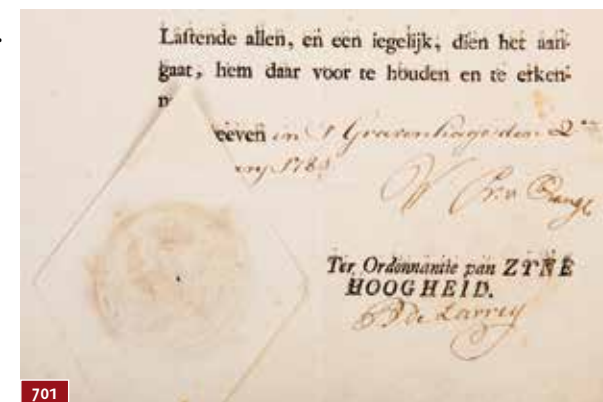 Lastende allen, en een iegelijk, dien het aan-
gaat, hem daar voor te houden en te erken-
n
eeven in S Gravenhage den 2
Pr. v Orange
Ter Ordonnantie van ZYNE
HOOGHEID.
De Larrey
701